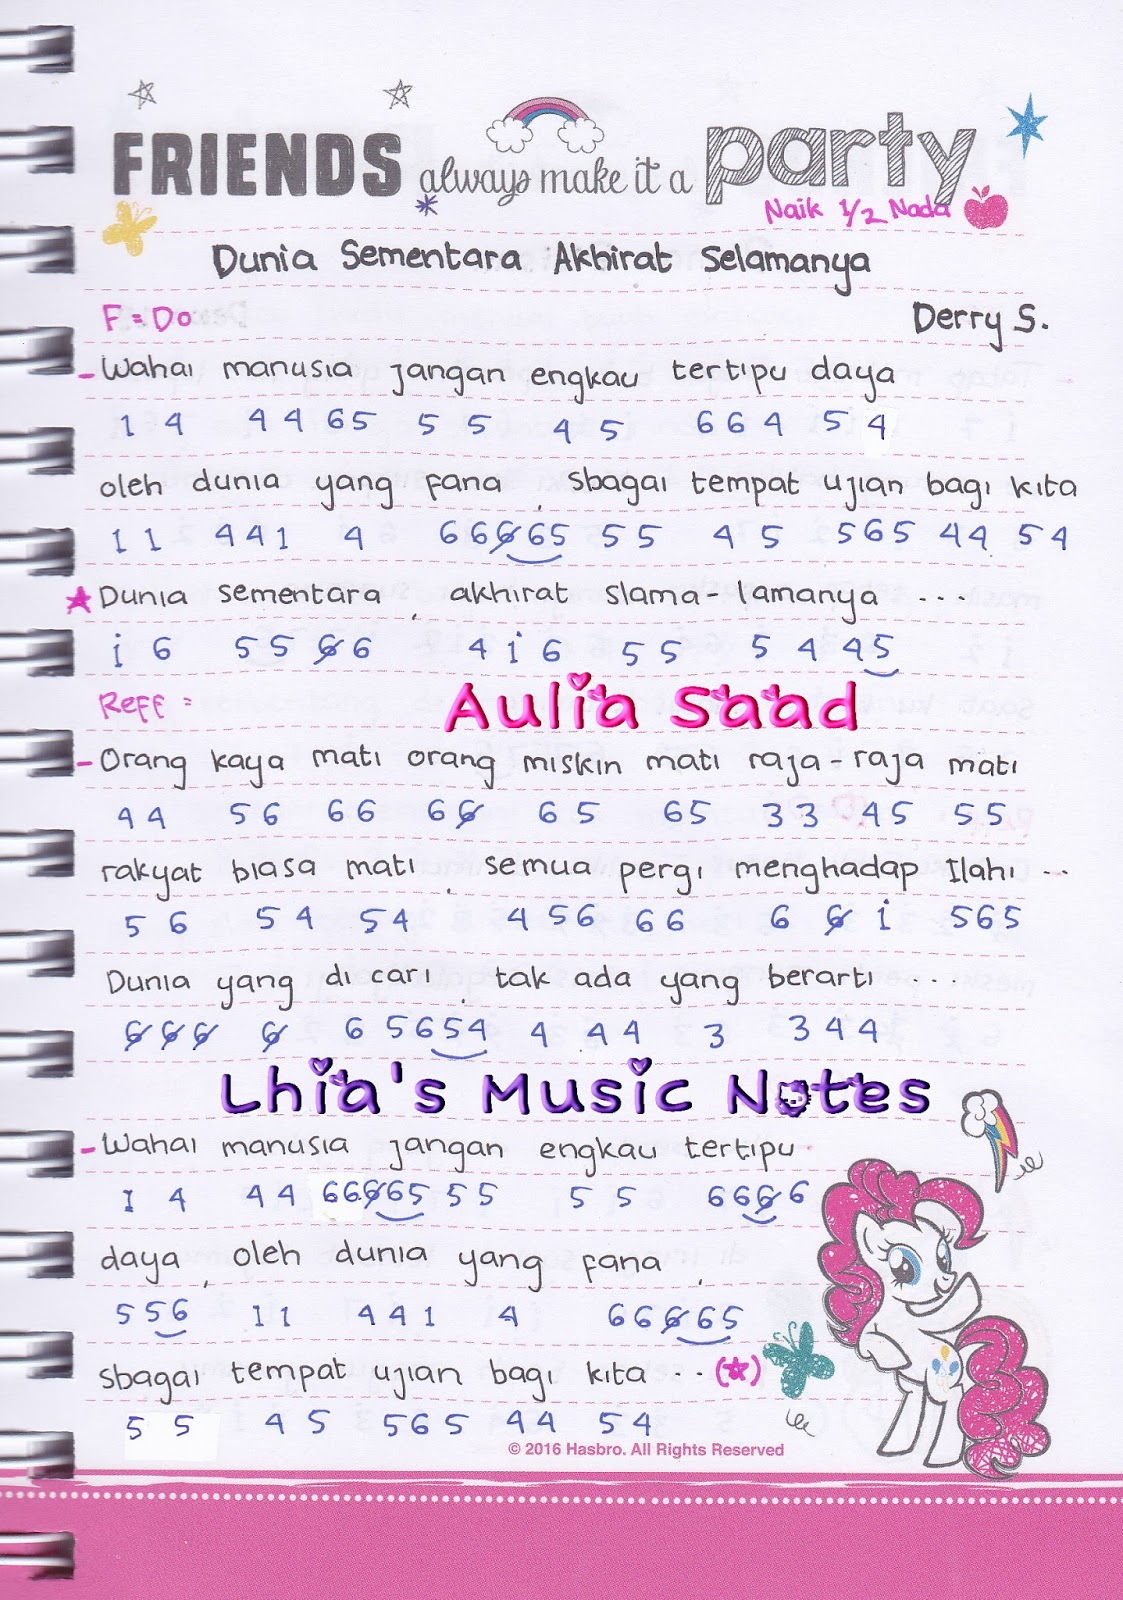 FRIENDS always make it a party
Naik 1/2 Nada
Dunia Sementara Akhirat Selamanya
F = Do
Derry S.
- Wahai manusia jangan engkau tertipu daya
1 4 4 4 6 5 5 5 4 5 6 6 4 5 4
oleh dunia yang fana , sbagai tempat ujian bagi kita
1 1 4 4 1 4 6 6 6̸ 6 5 5 5 4 5 5 6 5 4 4 5 4
★ Dunia sementara , akhirat slama-lamanya ...
i 6 5 5 6̸ 6 4 i 6 5 5 5 4 4 5
Reff =
Aulia Saad
- Orang kaya mati orang miskin mati raja-raja mati
4 4 5 6 6 6 6 6̸ 6 5 6 5 3 3 4 5 5 5
rakyat biasa mati , semua pergi menghadap Ilahi ..
5 6 5 4 5 4 4 5 6 6 6 6 6̸ i 5 6 5
Dunia yang di cari , tak ada yang berarti ...
6̸ 6̸ 6̸ 6̸ 6 5 6 5 4 4 4 4 3 3 4 4
Lhia's Music Notes
- Wahai manusia jangan engkau tertipu
1 4 4 4 6 6 6̸ 6 5 5 5 5 5 6 6 6̸ 6
daya , oleh dunia yang fana ,
5 5 6 1 1 4 4 1 4 6 6 6̸ 6 5
sbagai tempat ujian bagi kita .. (★)
5 5 4 5 5 6 5 4 4 5 4
© 2016 Hasbro. All Rights Reserved